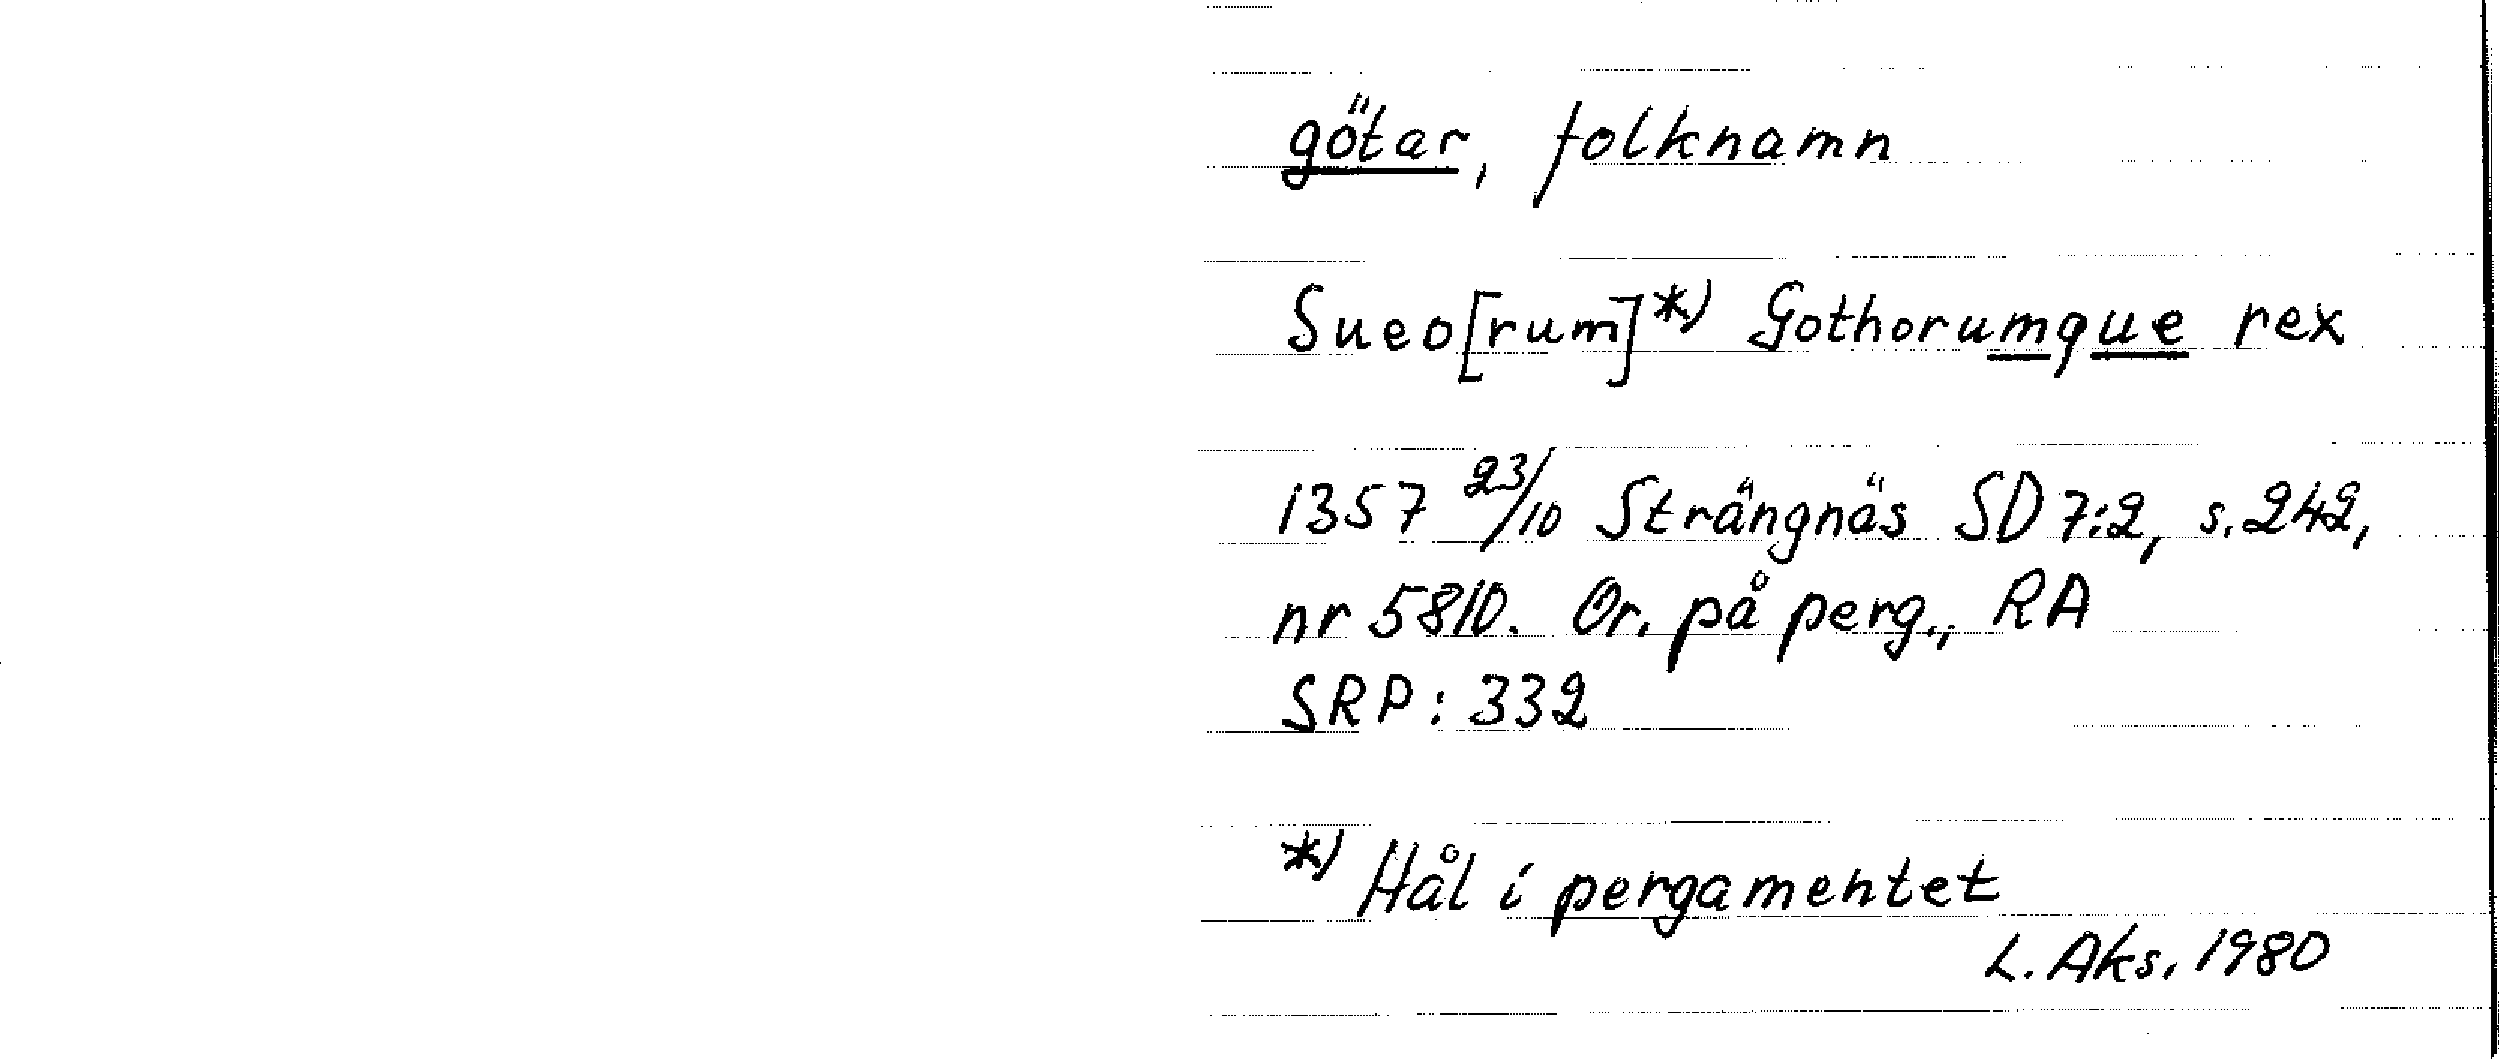 götar, folknamn
Sueo[rum]*) Gothorumque rex
1357 23/10 Strängnäs SD 7:2, s. 242,
nr 5810. Or. på perg., RA
SRP: 332
*) Hål i pergamentet
L. Aks. 1980